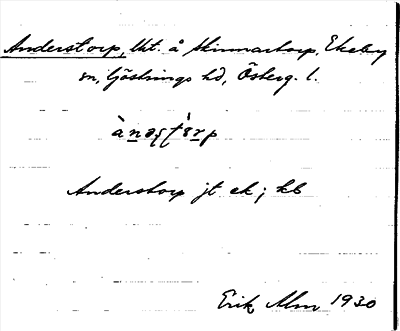 Anderstorp, lht. å Skinnartorp, Ekeby
sn, Göstrings hd, Österg. l.
Anderstorp jt ek; kb
Erik Alm 1930